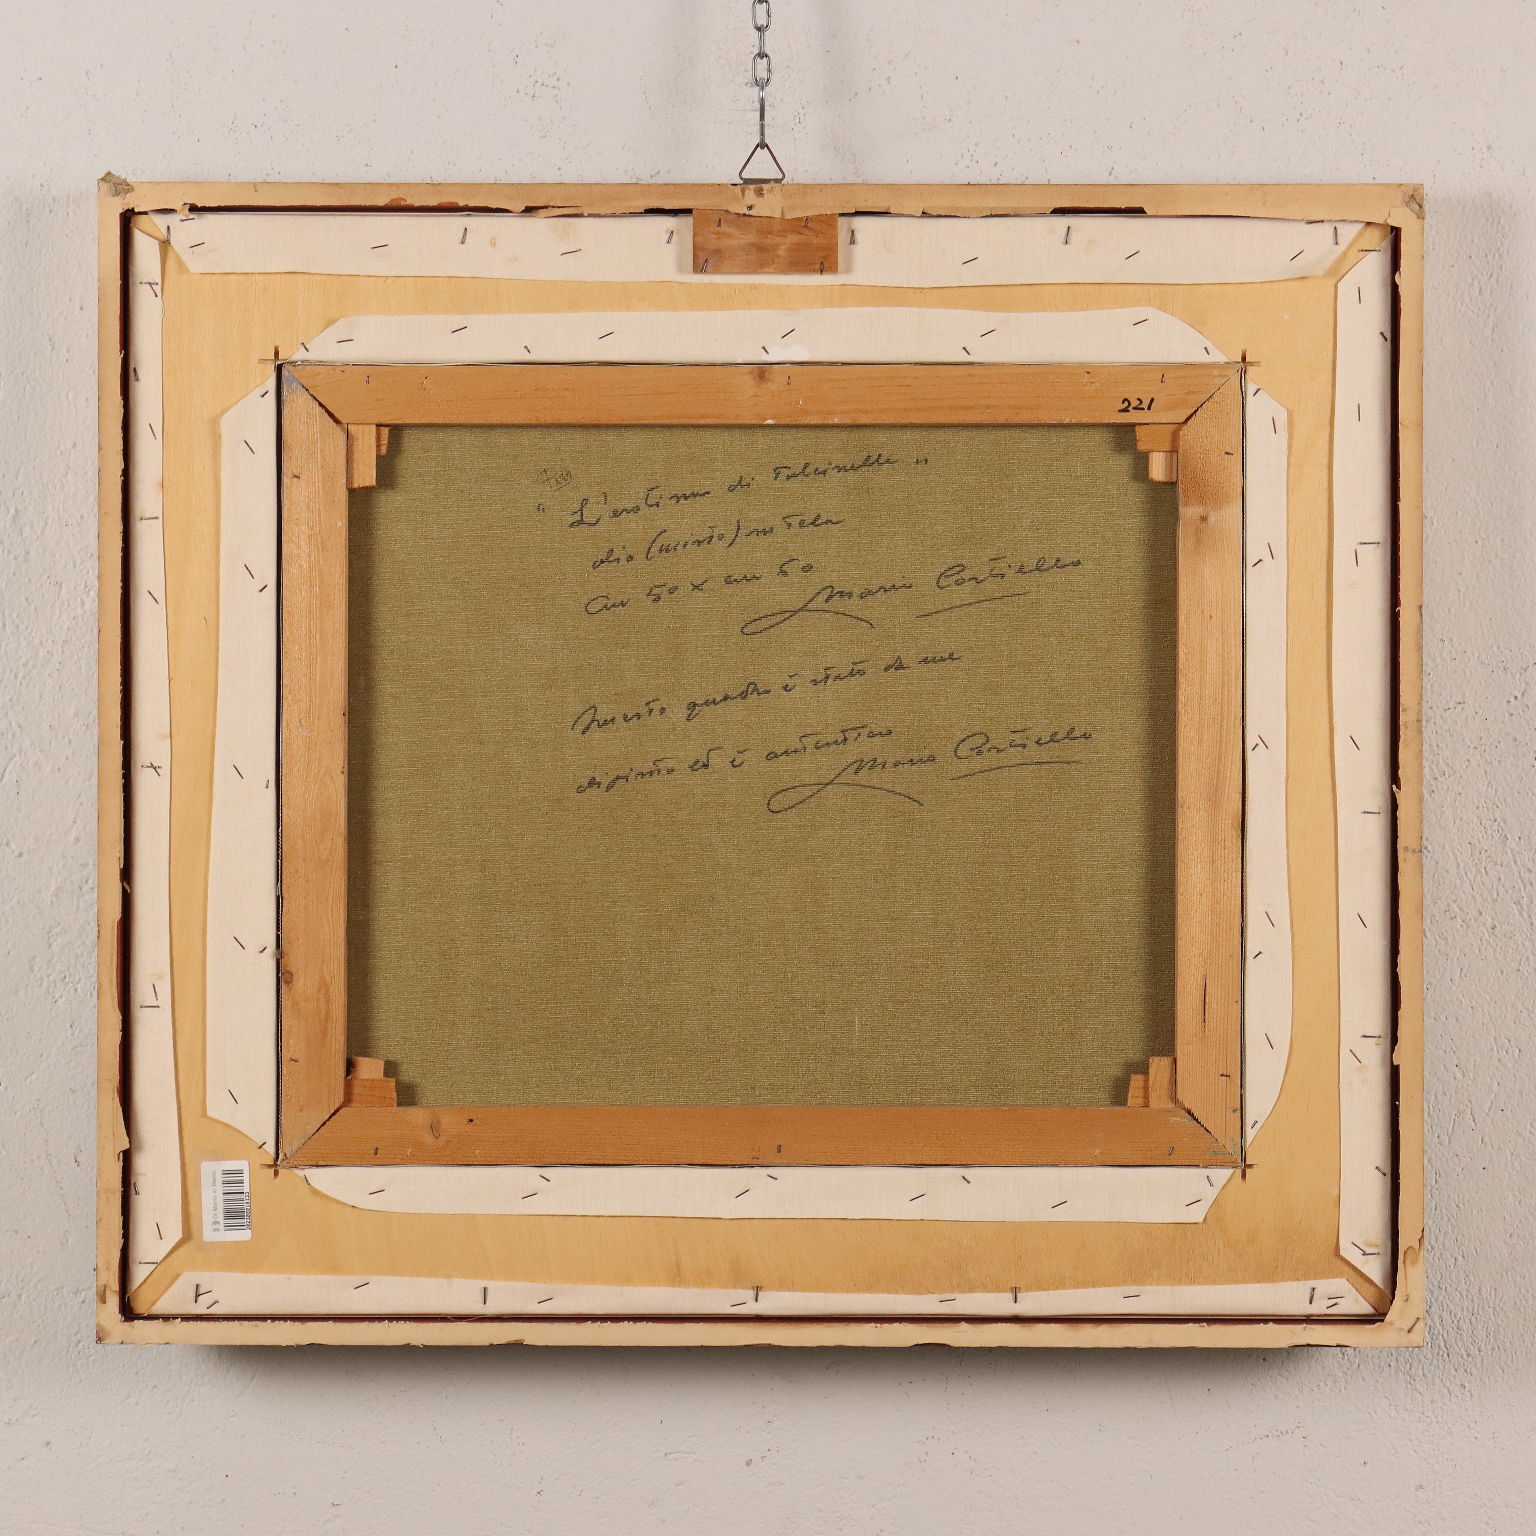 221
"L'erotismo di Pulcinella"
olio (misto) su tela
cm 50 x cm 60
Mario Cortiello
Questo quadro è stato da me
dipinto ed è autentico
Mario Cortiello
Di Mano in Mano